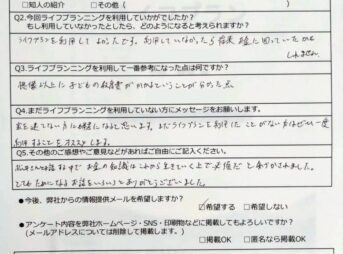 □知人の紹介　□その他（
Q2.今回ライフプランニングを利用していかがでしたか？
もし利用していなかったとしたら、どのようになると考えられますか？
ライフプランを利用して よかったです。利用していなかったら将来 お金に困っていたかも
しれません。
Q3.ライフプランニングを利用して一番参考になった点は何ですか？
想像以上に子どもの教育費がかかるということが分かった点。
Q4.まだライフプランニングを利用していない方にメッセージをお願いします。
まだライフプランを利用したことがない方はぜひ一度
利用することをオススメします。
Q5.その他のご感想やご意見などがあればご自由にご記入ください。
お金の知識はこれから生きていく上で必須だと
とてもためになるお話をいろいろとありがとうございました。
●今後、弊社からの情報提供メールを希望しますか？
☑希望する　□希望しない
●アンケート内容を弊社ホームページ・SNS・印刷物などに掲載してもよろしいですか？
（メールアドレスについては削除して掲載します。）
□掲載OK　□匿名なら掲載OK